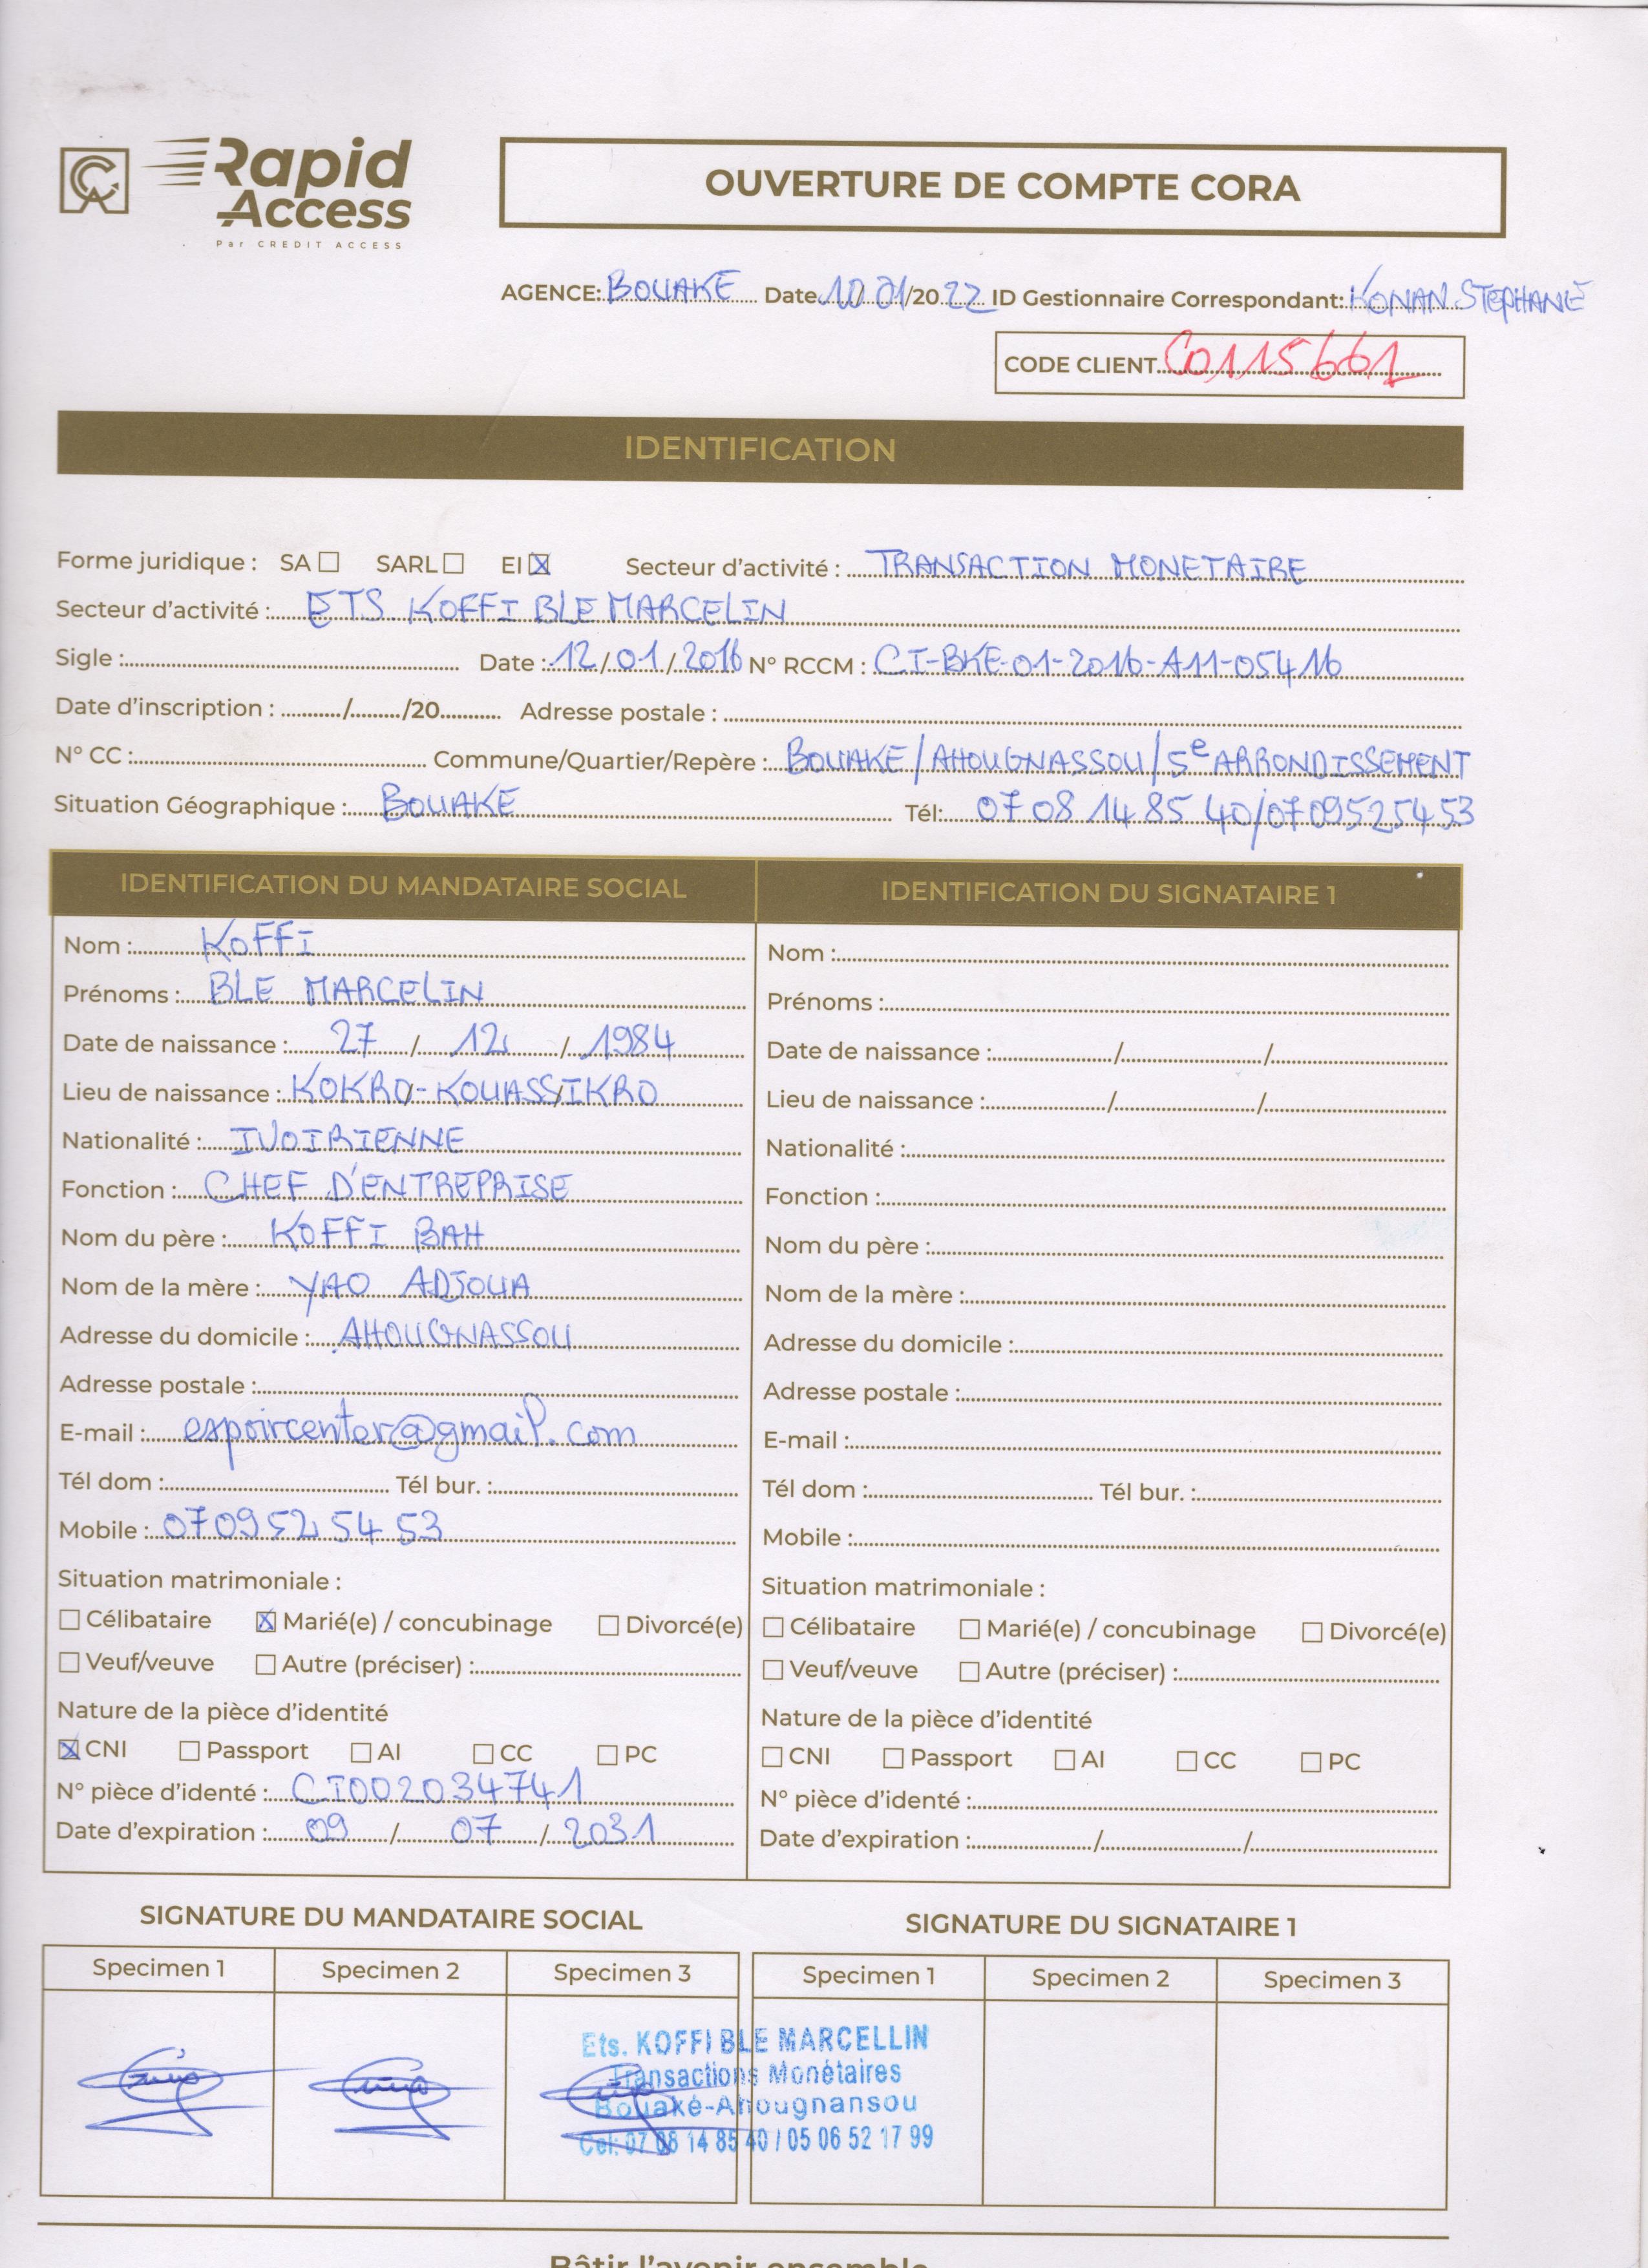 CA Rapid Access
Par CREDIT ACCESS
OUVERTURE DE COMPTE CORA
AGENCE: BOUAKE Date 10/01/2022 ID Gestionnaire Correspondant: KONAN STEPHANE
CODE CLIENT C0115661
IDENTIFICATION
Forme juridique : SA ☐ SARL ☐ EI ☒ Secteur d'activité : TRANSACTION MONETAIRE
Secteur d'activité : ETS KOFFI BLE MARCELIN
Sigle : Date : 12/01/2016 N° RCCM : CI-BKE-01-2016-A11-05416
Date d'inscription : ....../....../20...... Adresse postale :
N° CC : Commune/Quartier/Repère : BOUAKE/AHOUGNASSOU/5e ARRONDISSEMENT
Situation Géographique : BOUAKE Tél: 07 08 14 85 40/0709525453
IDENTIFICATION DU MANDATAIRE SOCIAL
Nom : KOFFI
Prénoms : BLE MARCELIN
Date de naissance : 27 / 12 / 1984
Lieu de naissance : KOKRO-KOUASSIKRO
Nationalité : IVOIRIENNE
Fonction : CHEF D'ENTREPRISE
Nom du père : KOFFI BAH
Nom de la mère : YAO ADJOUA
Adresse du domicile : AHOUGNASSOU
Adresse postale :
E-mail : espoircenter@gmail.com
Tél dom : Tél bur. :
Mobile : 0709525453
Situation matrimoniale :
☐ Célibataire ☒ Marié(e) / concubinage ☐ Divorcé(e)
☐ Veuf/veuve ☐ Autre (préciser) :
Nature de la pièce d'identité
☒ CNI ☐ Passport ☐ AI ☐ CC ☐ PC
N° pièce d'identé : CI002034741
Date d'expiration : 09 / 07 / 2031
IDENTIFICATION DU SIGNATAIRE 1
Nom :
Prénoms :
Date de naissance : / /
Lieu de naissance : / /
Nationalité :
Fonction :
Nom du père :
Nom de la mère :
Adresse du domicile :
Adresse postale :
E-mail :
Tél dom : Tél bur. :
Mobile :
Situation matrimoniale :
☐ Célibataire ☐ Marié(e) / concubinage ☐ Divorcé(e)
☐ Veuf/veuve ☐ Autre (préciser) :
Nature de la pièce d'identité
☐ CNI ☐ Passport ☐ AI ☐ CC ☐ PC
N° pièce d'identé :
Date d'expiration : / /
SIGNATURE DU MANDATAIRE SOCIAL
Specimen 1 Specimen 2 Specimen 3
SIGNATURE DU SIGNATAIRE 1
Specimen 1 Specimen 2 Specimen 3
Ets. KOFFI BLE MARCELLIN
Transactions Monétaires
Bouaké-Ahougnansou
Cel: 07 08 14 85 40 / 05 06 52 17 99
Bâtir l'avenir ensemble